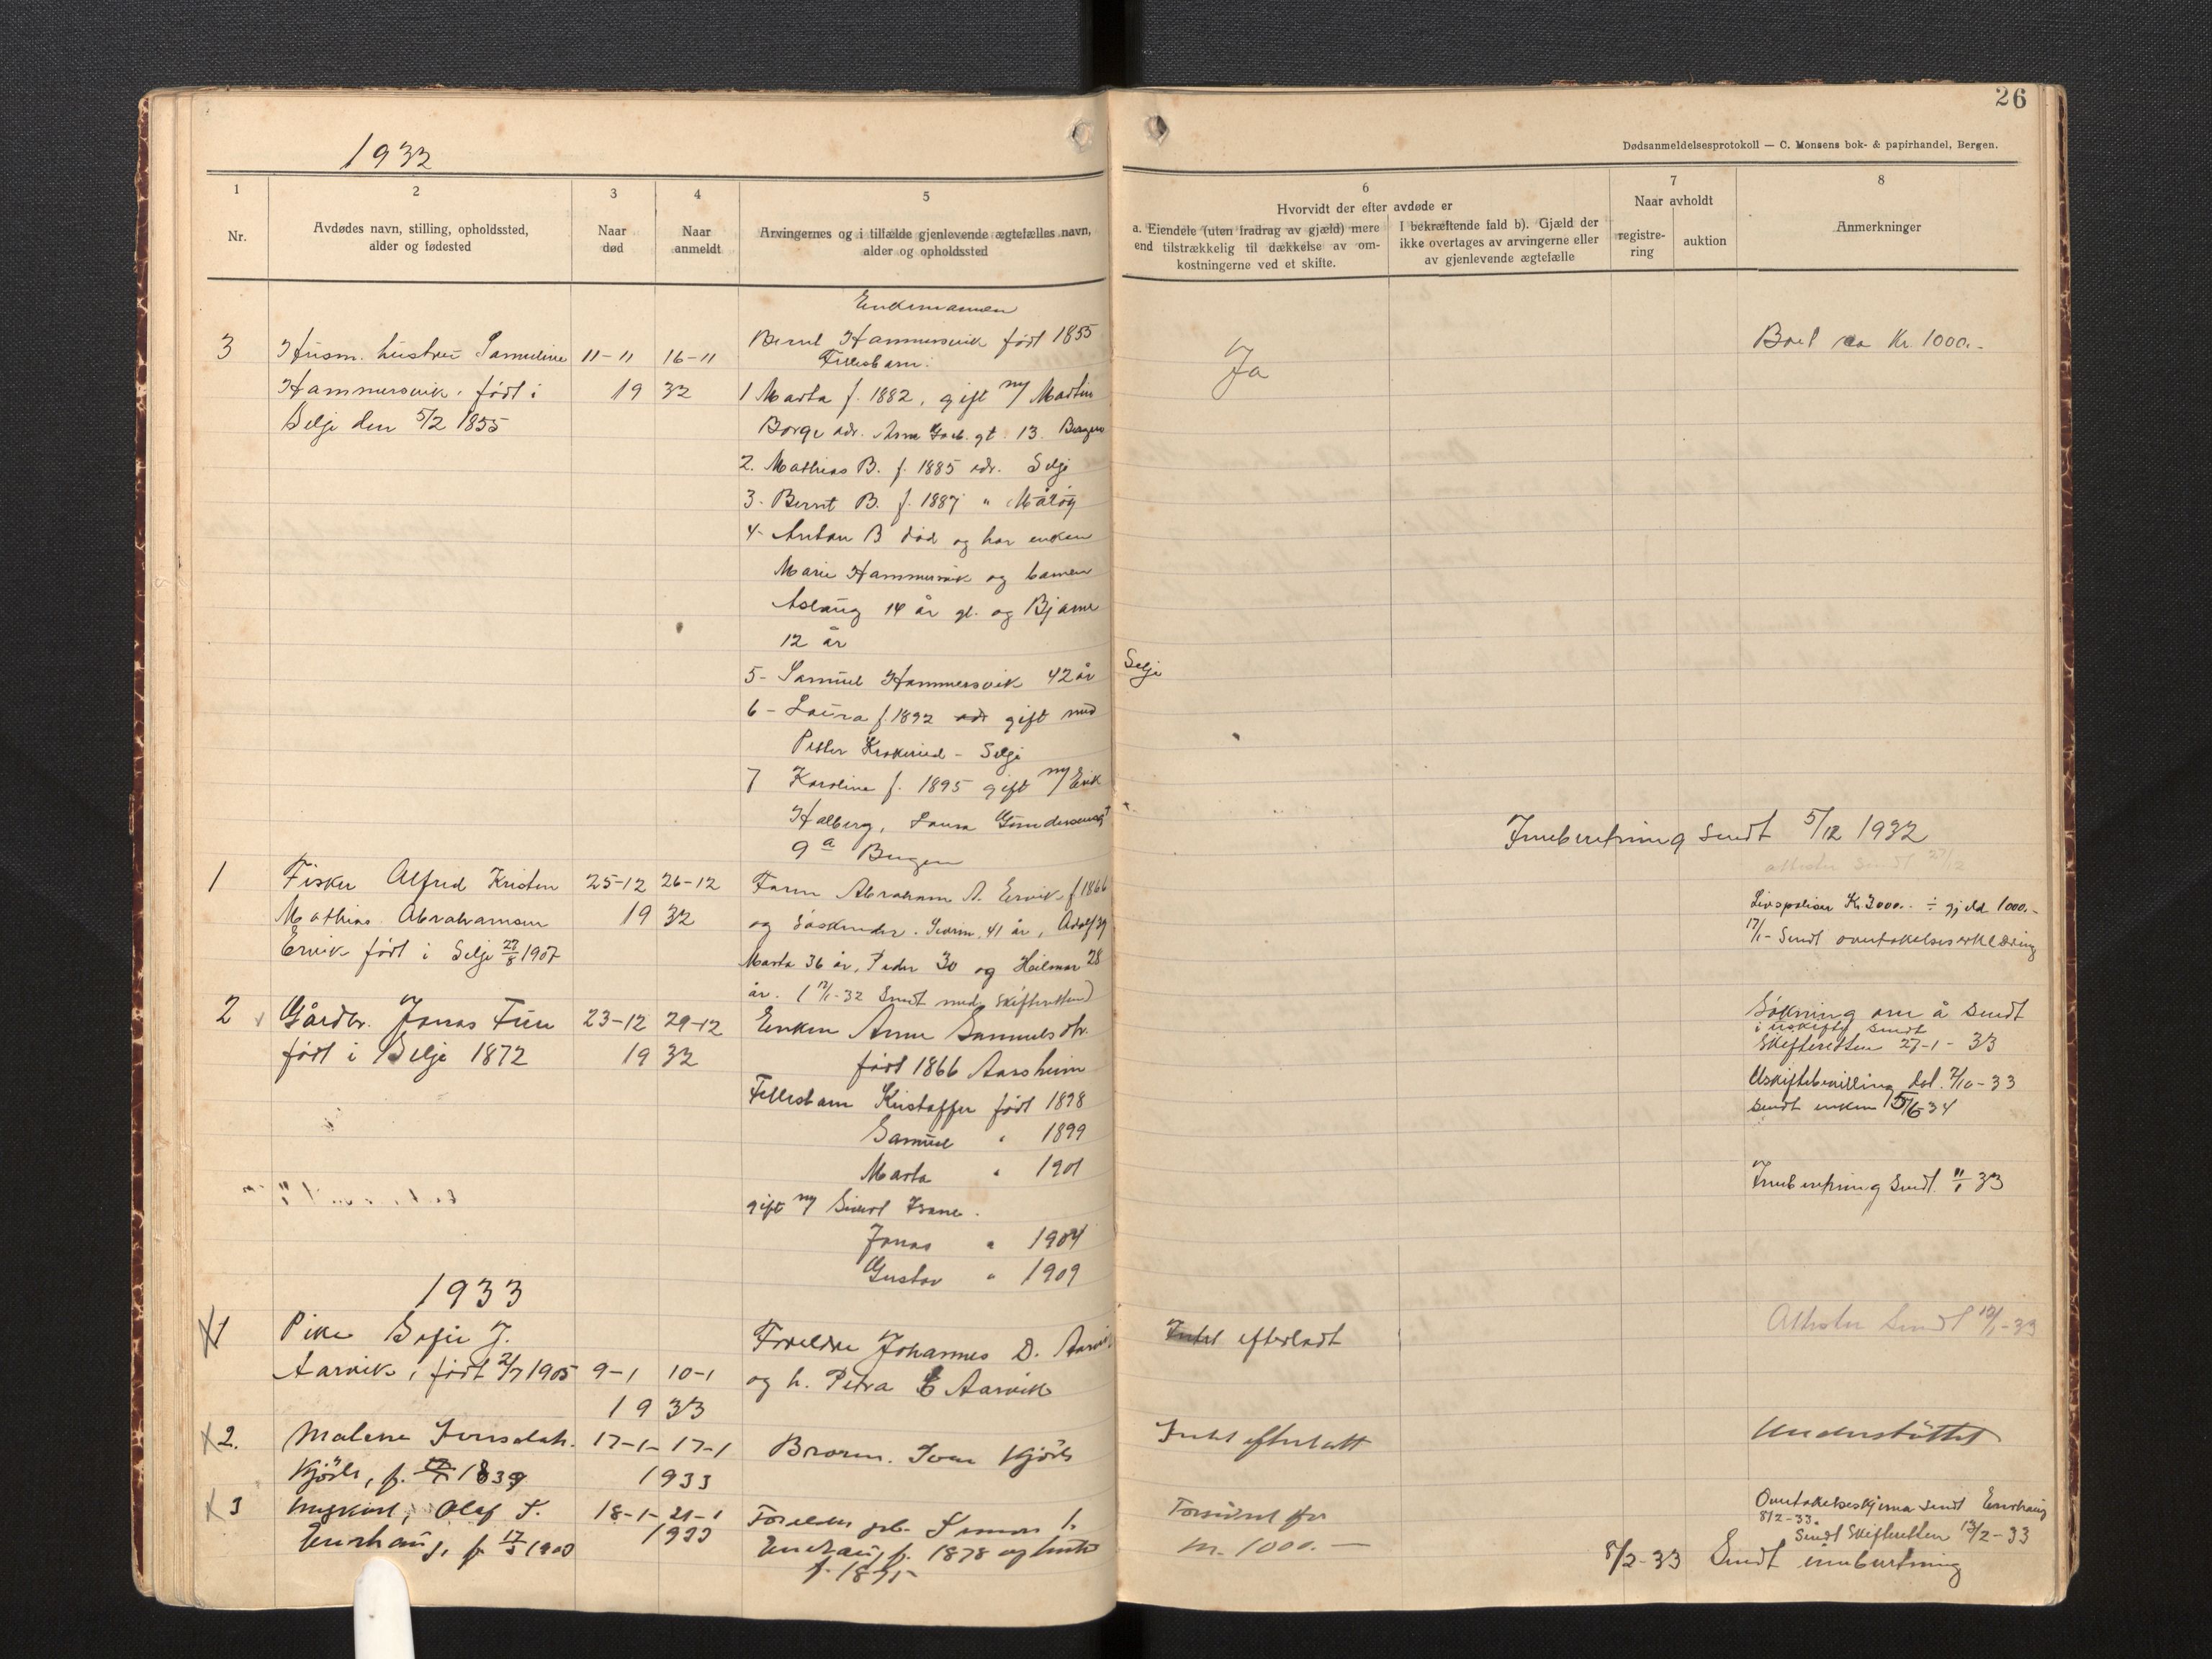 26
Dødsanmeldelsesprotokoll — C. Monsens bok- & papirhandel, Bergen.
1932
1
Nr.
2
Avdødes navn, stilling, opholdssted,
alder og fødested
3
Naar
død
4
Naar
anmeldt
5
Arvingernes og i tilfælde gjenlevende ægtefælles navn,
alder og opholdssted
6
Hvorvidt der efter avdøde er
a. Eiendele (uten fradrag av gjæld) mere
end tilstrækkelig til dækkelse av om-
kostningerne ved et skifte.
I bekræftende fald b). Gjæld der
ikke overtages av arvingerne eller
av gjenlevende ægtefælle
7
Naar avholdt
registre-
ring
auktion
8
Anmerkninger
3
Husm. hustru Samueline
Hammersvik, født i
Selje den 5/2 1855
11-11
16-11
19 32
Enkemannen
Bernt Hammersvik født 1855
Fellesbarn:
1 Marta f. 1882, gift m/ Martin
Borge adr. 13. Bergen
2. Mathias B. f. 1885 adr. Selje
3- Bernt B. f. 1887 " Måløy
4- Anton B død og har enken
Marie Hammersvik og barnen
Aslaug 14 år gl. og Bjarne
12 år
5- Samuel Hammersvik 42 år Selje
6- Laura f. 1892 adr gift med
Petter - Selje
7 Karoline f. 1895 gift m/ Erik
Halberg, Laura Gundersensgt
9a Bergen
Ja
Boet ca Kr. 1000.-
Innberetning sendt 5/12 1932
attester sendt 27/12
1
Fisker Alfred Kristen
Mathias Abrahamsen
Ervik født i Selje 27/8 1907
25-12
26-12
19 32
Faren Abraham A. Ervik f 1866
og søskender. 41 år, Adolf 39
Marta 36 år, Peder 30 og Heilmar 28
år. (17/1-32 Sendt med skifteretten)
Livspoliser Kr 3000.- ÷ gjeld 1000.-
17/1- Sendt overtakelseserklæring
2
Gårdbr. Jonas Fure
født i Selje 1872
23-12
29-12
19 32
Enken Anne Samuelsdtr.
født 1866 Aarsheim
Fellesbarn Kristoffer født 1898
Samuel " 1899
Marta " 1901
gift m/ Sivert
Jonas " 1904
Gustav " 1909
Søkning om å sendt
i uskifte sendt
Skifteretten 27-1-33
Uskiftebevilling dat. 7/10-33
sendt enken 15/6 34
Innberetning sendt 11/1 33
1933
1
Pike Sofie J.
Aarvik, født 2/7 1905
9-1
10-1
19 33
Foreldre Johannes D. Aarvik
og h. Petra Aarvik
Intet efterladt
Attester sendt 12/1-33
2.
Malene Iversdatr.
Kjøde, f. 1839
17-1-
17-1
1933
Broren. Iver Kjøde
Intet efterlatt
Understøttet
3
Ungkarl, Olaf S.
Enehaug, f. 17/3 1900
18-1-
21-1
1933
Foreldre gbr. Simon
Enehaug f. 1878 og hustr
f. 1875
Forsikret for
kr. 1000.—
Overtakelseskjema sendt Enehaug
8/2-33.
Sendt Skifteretten 13/2-33
8/2-33 Sendt innberetning